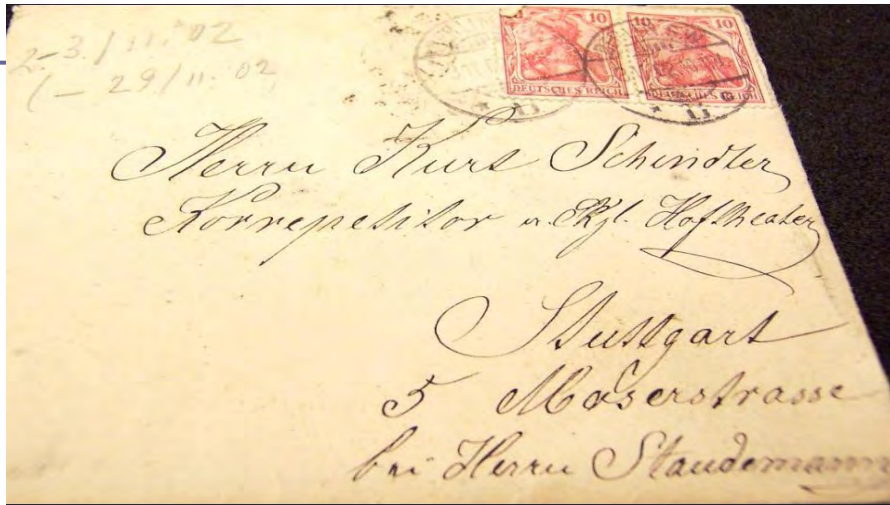 2-3/11. 02
(- 29/11. 02
10
10
DEUTSCHES REICH
DEUTSCHES REICH
Herrn Kurt Schindler
Korrepetitor a. Kgl. Hoftheater
Stuttgart
5 Moserstrasse
bei Herrn Staudemann